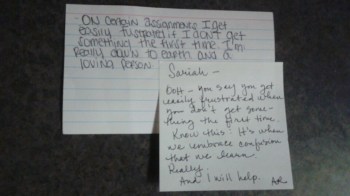 ON certain assignments I get
easily frustrated if I DON't get
something the first time. I'm
really down to earth and a
loving person.
Sariah -
Ooh - you say you get
easily frustrated when
you don't get some-
thing the first time.
Know this: It's when
we embrace confusion
that we learn!
Really.
And I will help.